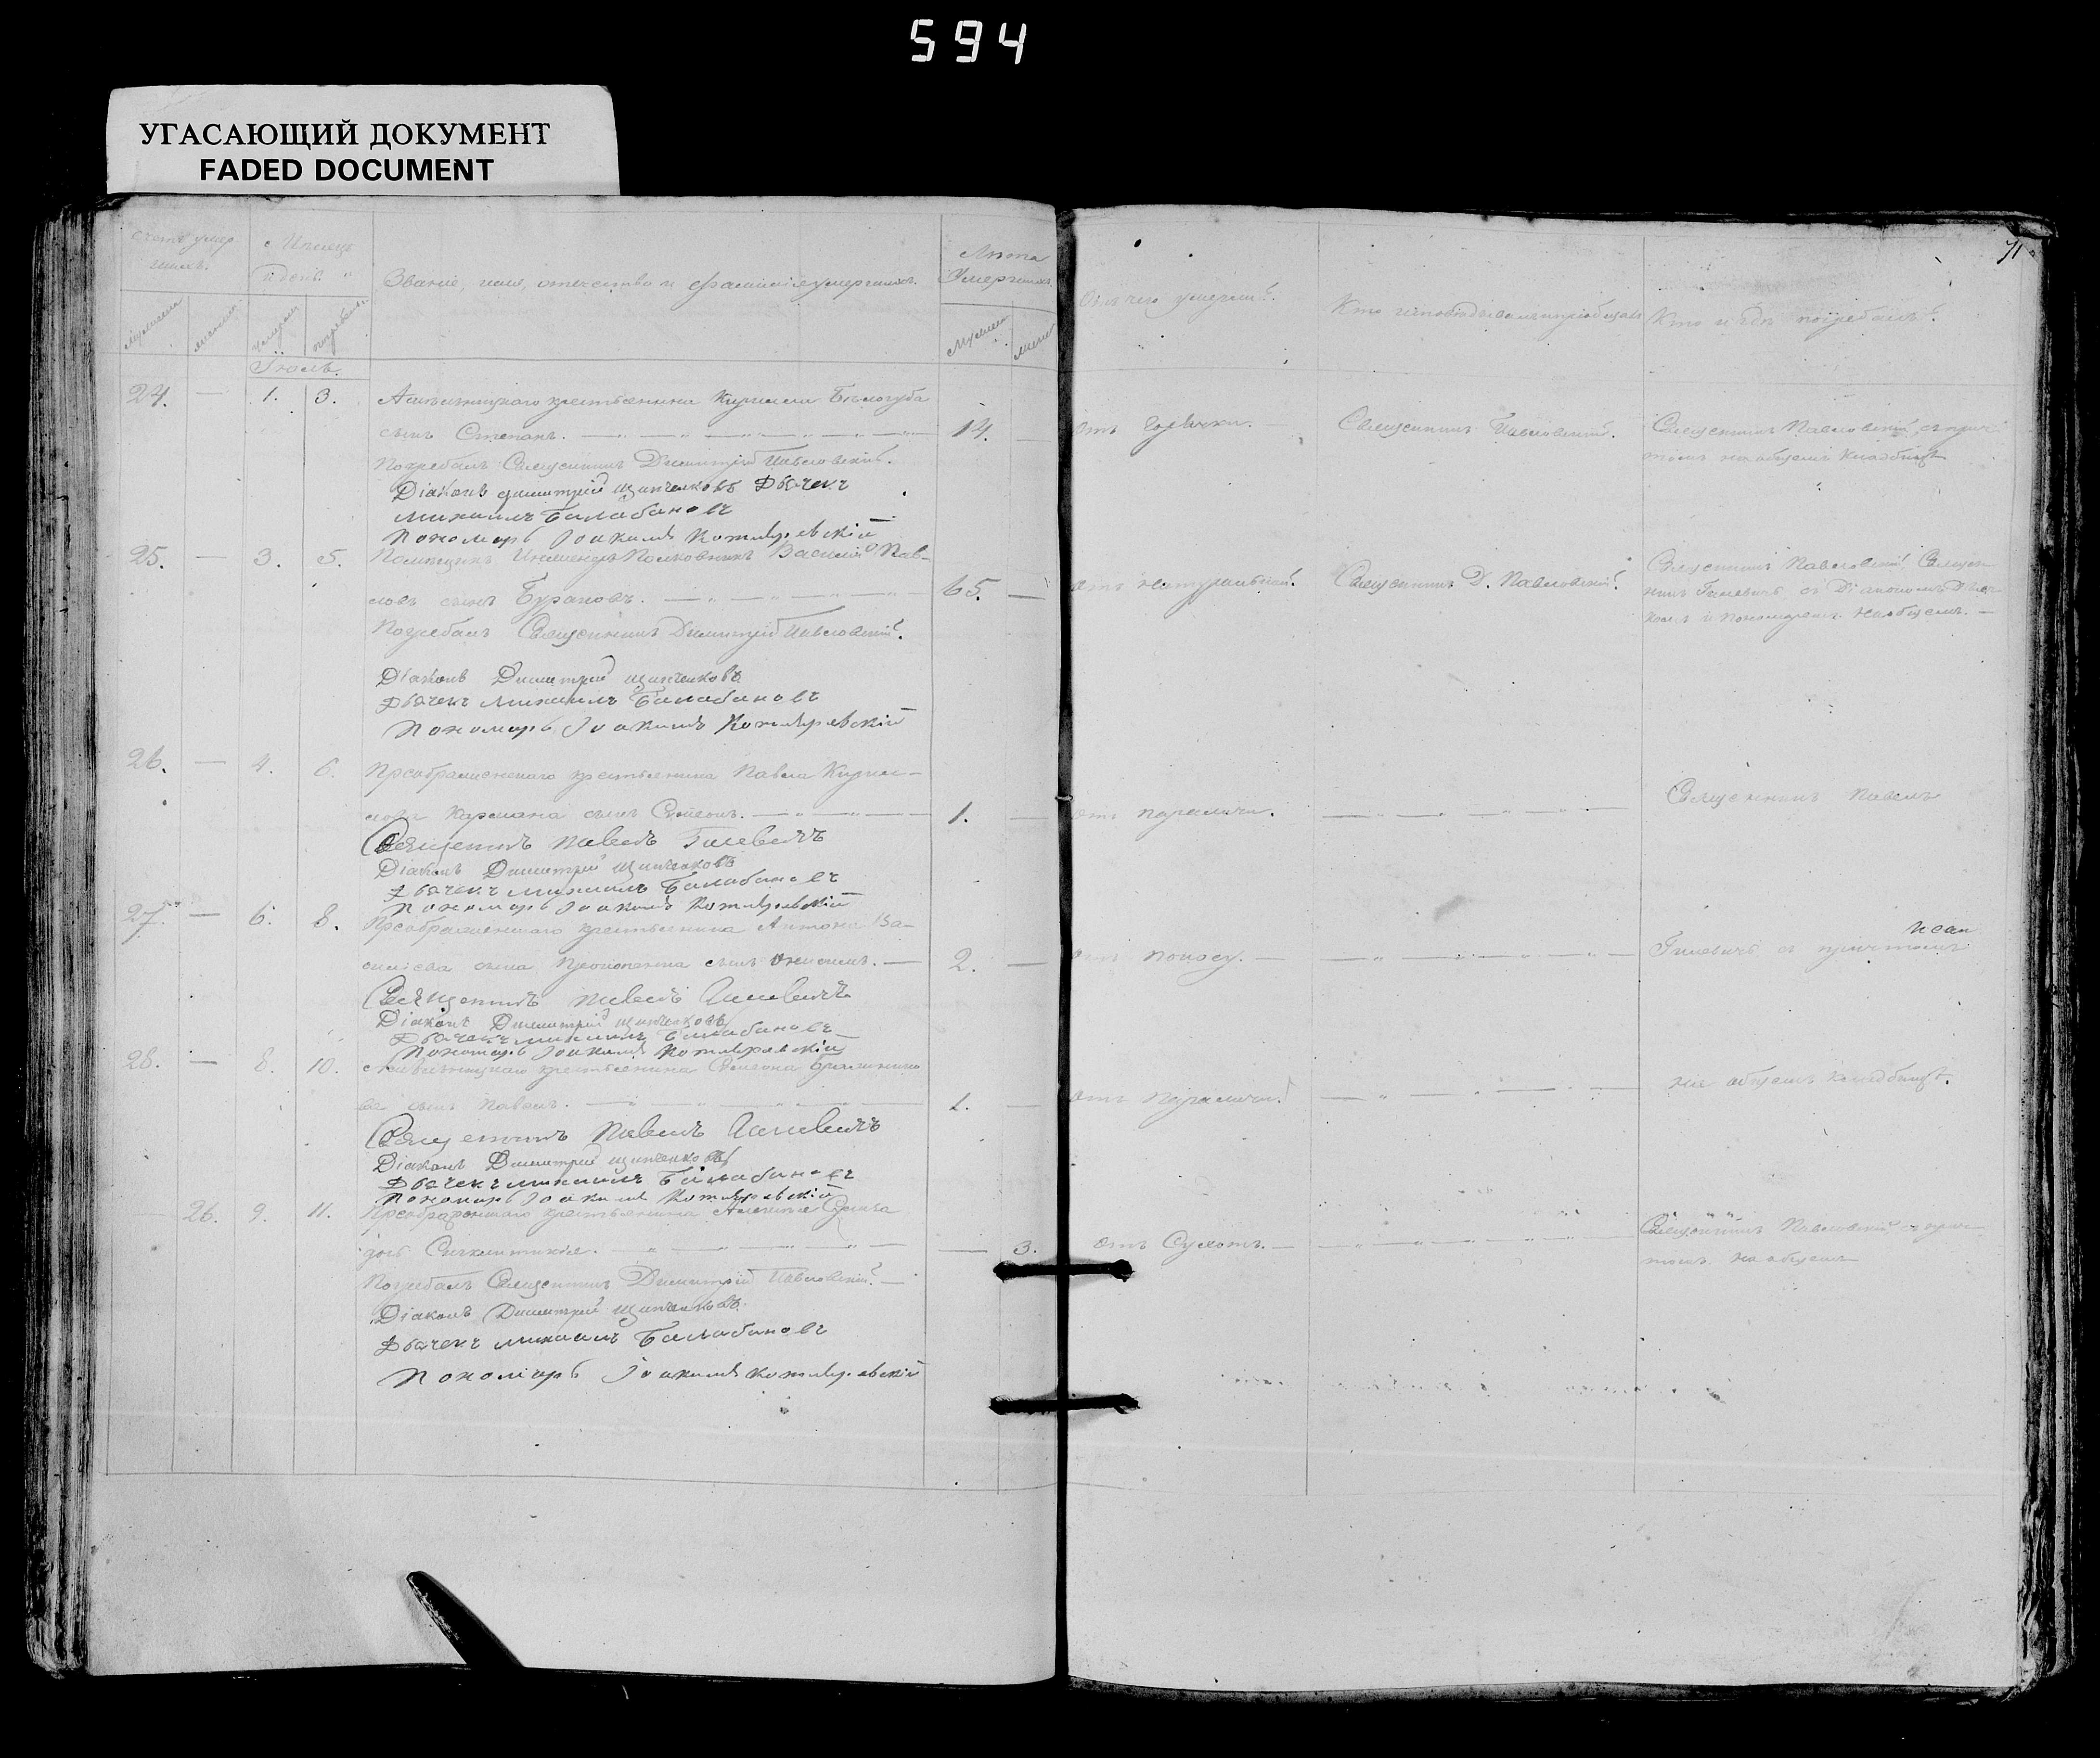 594
УГАСАЮЩИЙ ДОКУМЕНТ
FADED DOCUMENT
71
Счетъ умер
шихъ.
Мѣсяцъ
и день
Званіе, имя, отчество и фамилія умершихъ.
Лѣта
Умершихъ
Отъ чего умерли.
Кто исповѣдывалъ и пріобщалъ
Кто и гдѣ погребалъ.
Іюль.
24. — 1. 3. крестьянина Кирилла Бѣлогуба
сынъ Степанъ. 14. — Отъ Горячки. Священникъ Павловскій. Священникъ Павловскій съ прич
томъ на общемъ кладбищѣ
Погребалъ Священникъ Димитрій Павловскій.
Діаконъ Димитрій Щипченковъ Дьячекъ
Михаилъ Балабановъ
Пономарь Іоакимъ Котляревскій
25. — 3. 5. Помѣщикъ Инженеръ Полковникъ Василій Пав-
ловъ сынъ Бурановъ. 65. — Отъ Натуральной. Священникъ Д. Павловскій. Священникъ Павловскій Священ
никъ Гилевичъ съ Діакономъ Дьяч
комъ и Пономаремъ на общемъ. —
Погребалъ Священникъ Димитрій Павловскій.
Діаконъ Димитрій Щипченковъ
Дьячекъ Михаилъ Балабановъ
Пономарь Іоакимъ Котляревскій
26. — 4. 6. Преображенскаго крестьянина Павла Кирил-
лова Кармана сынъ Симеонъ. 1. — Отъ паралича. Священникъ Павелъ
Священникъ Павелъ Гилевичъ
Діаконъ Димитрій Щипченковъ
Дьячекъ Михаилъ Балабановъ
Пономарь Іоакимъ Котляревскій
27. — 6. 8. Преображенскаго крестьянина Антона Ва-
сильева сына сынъ 2. — Отъ поносу. Гилевичъ съ причтомъ
Священникъ Павелъ Гилевичъ
Діаконъ Димитрій Щипченковъ
Дьячекъ Михаилъ Балабановъ
Пономарь Іоакимъ Котляревскій
28. — 8. 10. крестьянина Симеона
ва сынъ Павелъ. 1. — Отъ Паралича. на общемъ кладбищѣ.
Священникъ Павелъ Гилевичъ
Діаконъ Димитрій Щипченковъ
Дьячекъ Михаилъ Балабановъ
Пономарь Іоакимъ Котляревскій
— 26. 9. 11. Преображенскаго крестьянина
дочь — 3. Отъ Сухотъ. — Священникъ Павловскій съ прич
томъ на общемъ
Погребалъ Священникъ Димитрій Павловскій. —
Діаконъ Димитрій Щипченковъ
Дьячекъ Михаилъ Балабановъ
Пономарь Іоакимъ Котляревскій